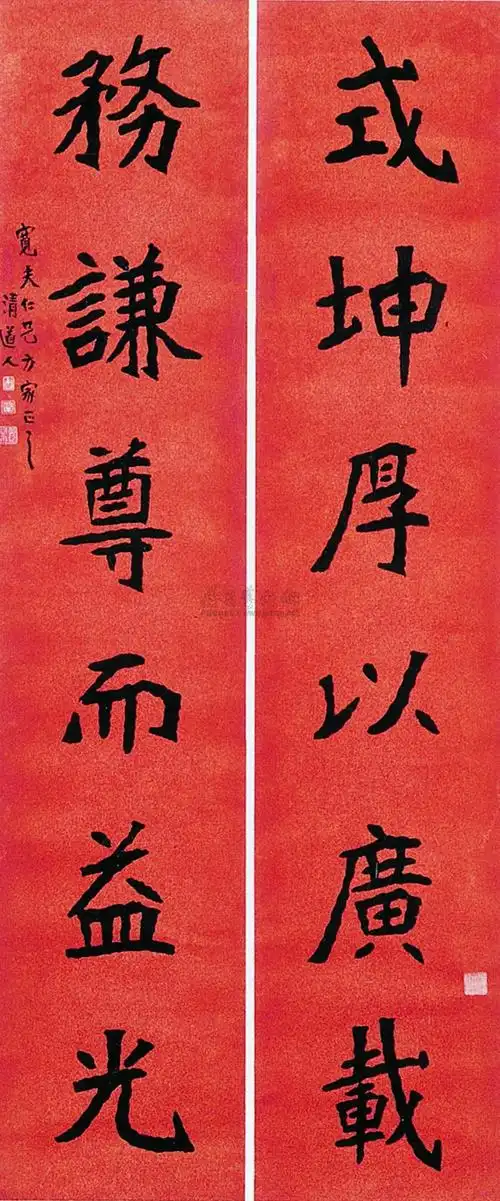 式坤厚以廣載
務謙尊而益光
寬夫仁兄方家正之
清道人